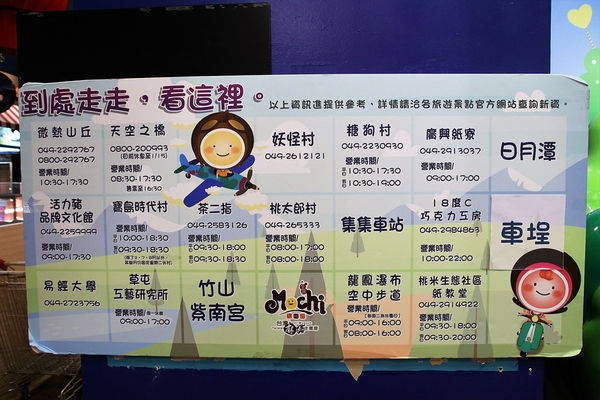 到處走走，看這裡。
以上資訊進提供參考，詳情請洽各旅遊景點官方網站查詢新資。
微熱山丘
049-2292767
0800-292767
營業時間/
10:30-17:30
天空之橋
0800-200993
營業時間/
08:30-17:30
售票至16:30
妖怪村
049-2612121
糖狗村
049-2230930
營業時間/
10:30-17:30
10:30-19:00
廣興紙寮
049-2913037
營業時間/
09:00-17:00
日月潭
活力豬
品牌文化館
049-2259999
營業時間/
09:00-17:30
寶島時代村
營業時間/
10:00-18:30
09:30-18:30
茶二指
049-2583126
營業時間/
09:30-18:00
09:30-18:30
桃太郎村
049-265333
營業時間/
08:00-17:00
08:00-18:00
集集車站
18度C
巧克力工房
049-2984863
營業時間/
10:00-22:00
車埕
易經大學
049-2723756
草屯
工藝研究所
營業時間/
09:00-17:00
竹山
紫南宮
Mochi
龍鳳瀑布
空中步道
營業時間/
09:00-16:00
08:00-16:00
桃米生態社區
紙教堂
049-2914922
營業時間/
09:30-18:00
09:30-20:00